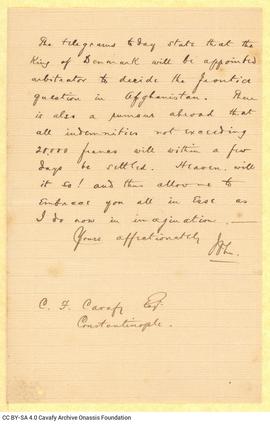 The telegrams to day state that the
King of Denmark will be appointed
arbitrator to decide the frontier
question in Afghanistan. There
is also a rumour abroad that
all indemnities not exceeding
20,000 francs will within a few
days be settled. Heaven will
it so! and thus allow me to
embrace you all in Ease as
I do now in imagination —
Yours affectionately
John
C. F. Cavafy Esq.
Constantinople.
CC BY-SA 4.0 Cavafy Archive Onassis Foundation